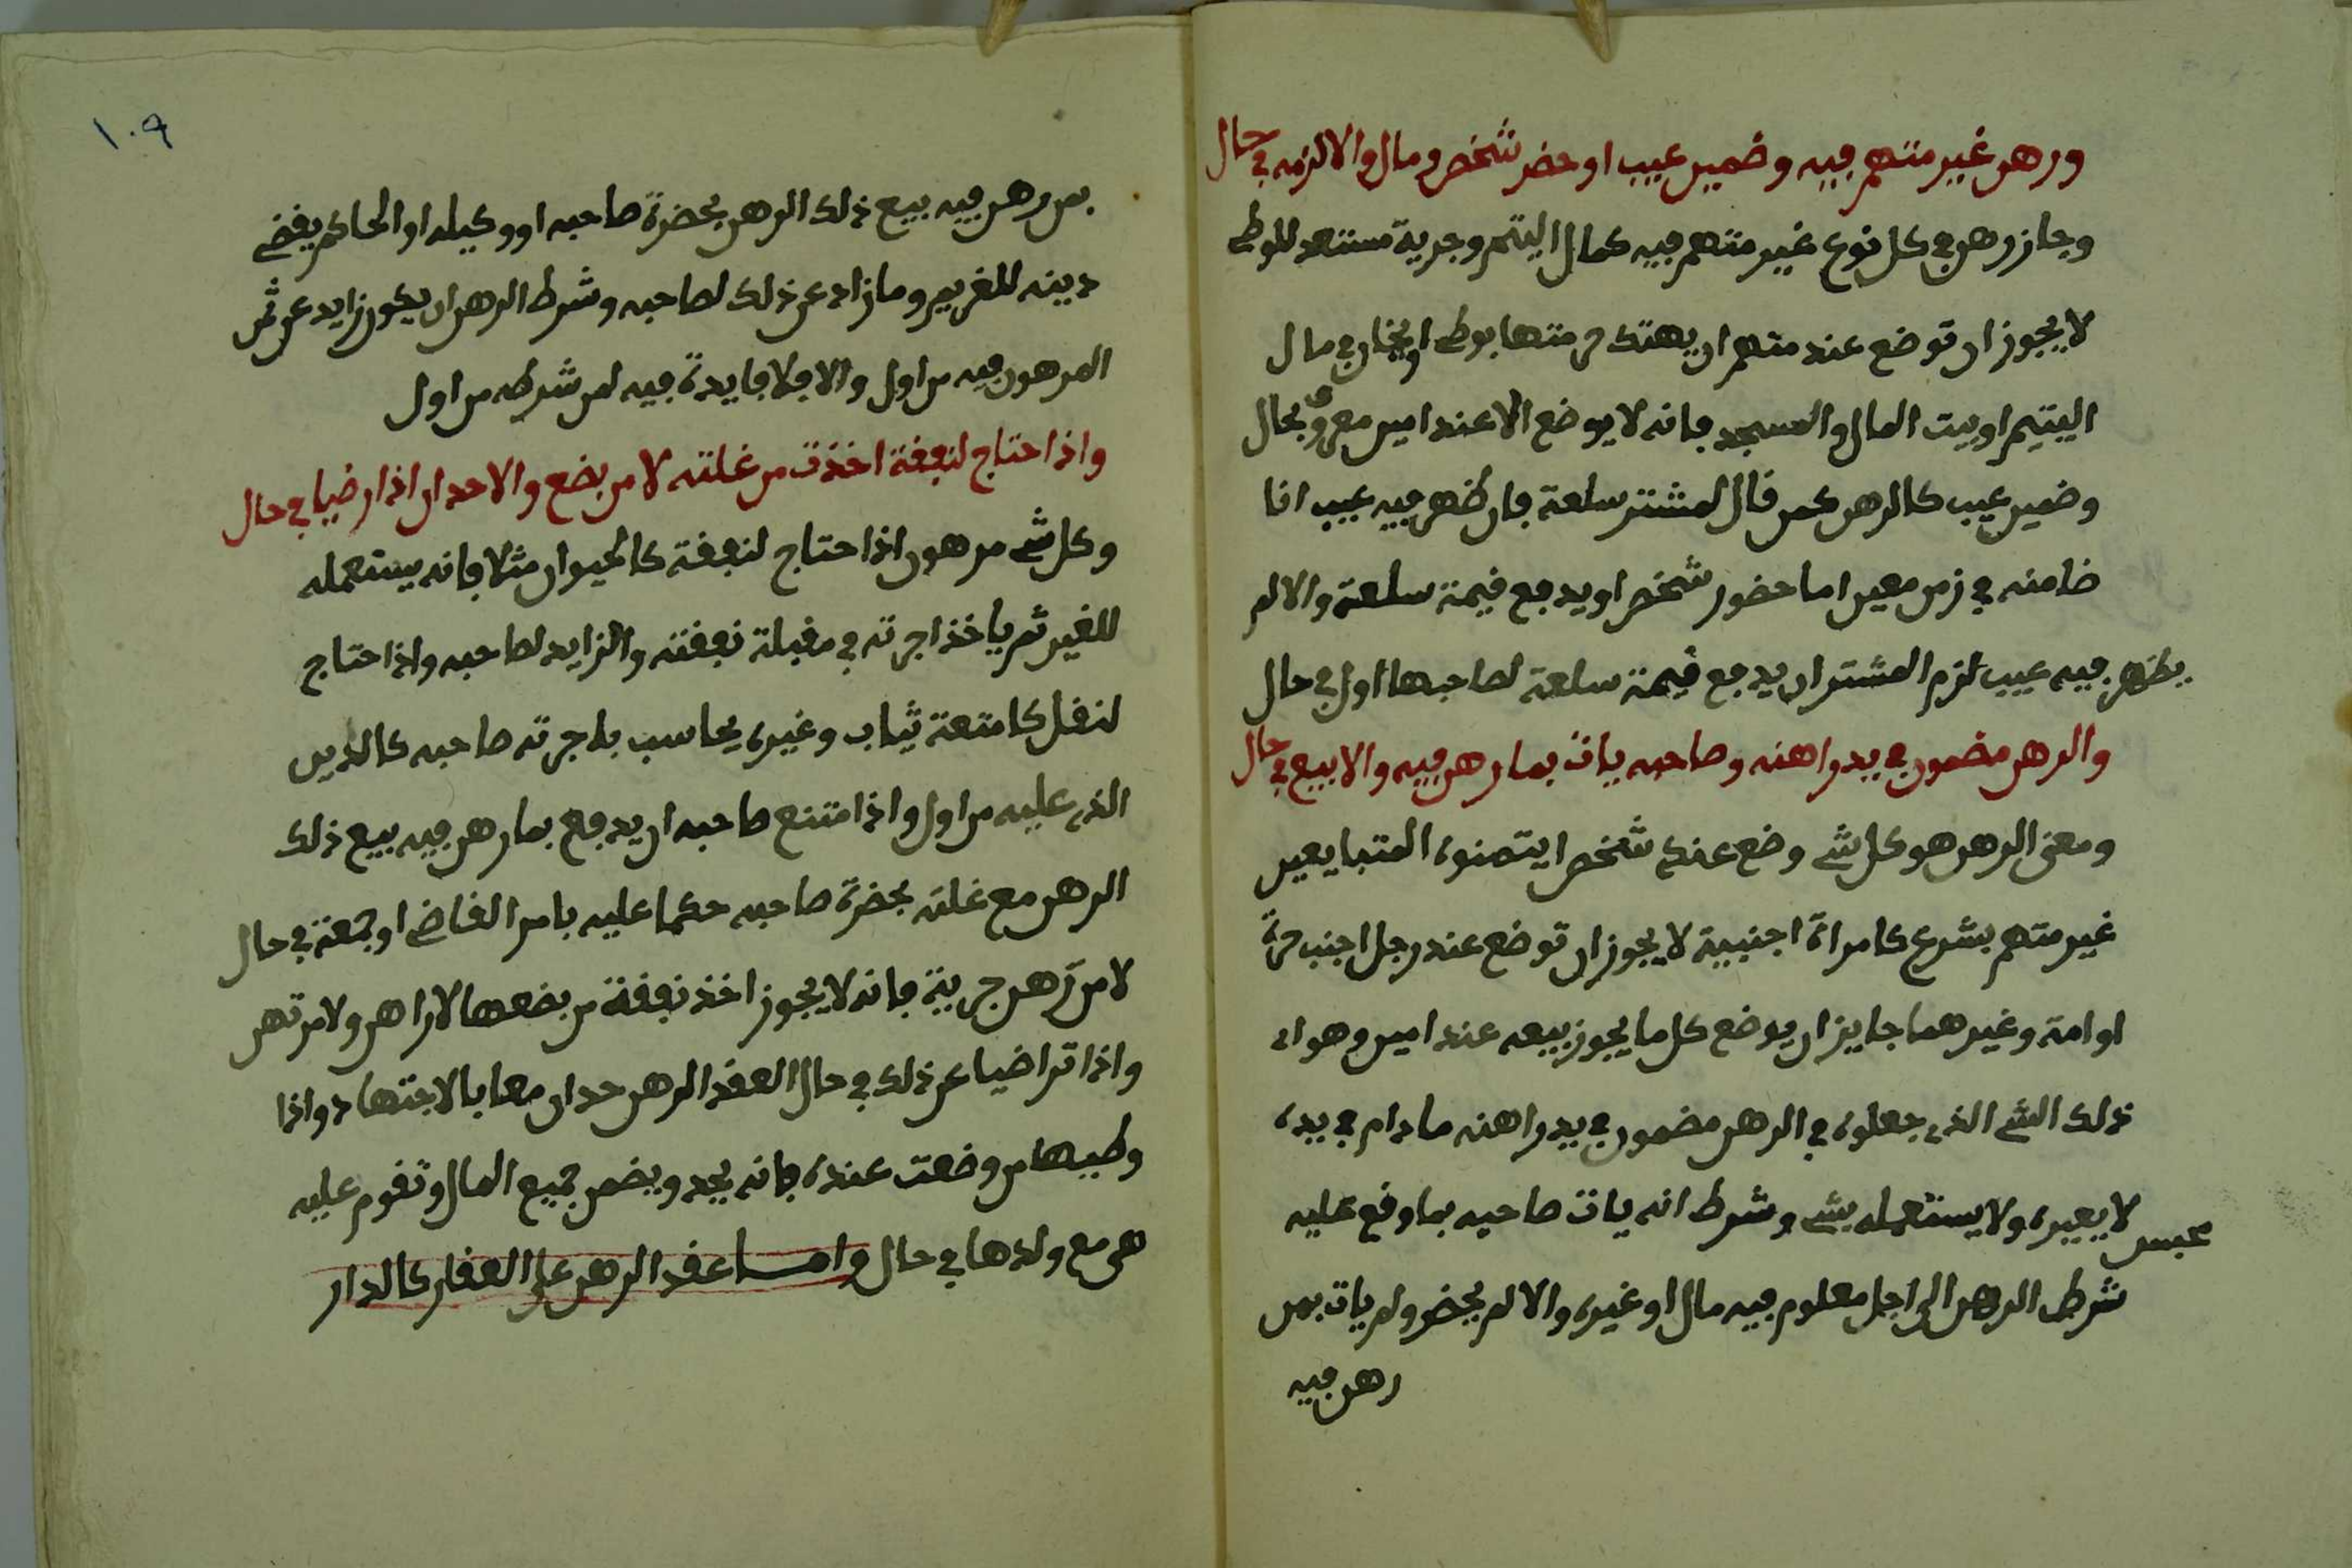 ورهن غير متهم فيه وضمين عيب او حضر شخص ومال والا لزمه في حال
وجاز رهن في كل نوع غير متهم فيه كمال اليتم وجرية مستعد للوطي
لا يجوز ان توضع عند متهم ان يهتك حرمتها بوطي او يخان في مال
اليتيم او بيت المال والمسجد فانه لا يوضع الا عند امين معروف بحال
وضمين عيب كالرهن كمن قال لمشتر سلعة فان ظهر فيه عيب انا
ضامنه في زمن معين اما حضور شخص او يدفع قيمة سلعة والا لم
يظهر فيه عيب لزم المشتر ان يدفع قيمة سلعة لصاحبها اول في حال
والرهن مضمون في يد راهنه وصاحبه يات بما رهن فيه والا بيع في حال
ومعنى الرهن هو كل شي وضع عند شخص ايتمنوه المتبايعين
غير متهم بشرع كامراة اجنبية لا يجوز ان توضع عند رجل اجنب حرة
او امة وغيرهما جايز ان يوضع كل ما يجوز بيعه عند امين وهو اي
ذلك الشي الذي جعلوه في الرهن مضمون في يد راهنه ما دام في يده
محبس لا يعيره ولا يستعمله بشي وشرط انه يات صاحبه بما وقع عليه
شرط الرهن الى اجل معلوم فيه مال او غيره والا لم يحضر ولم يات بمن
رهن فيه
١٠٩
بمن رهن فيه بيع ذلك الرهن بحضرة صاحبه او وكيله او الحاكم يقضي
دينه للغريم وما زاد عن ذلك لصاحبه وشرط الرهن ان يكون زايد عن ثمن
المرهون فيه من اول والا فلا فايدة فيه لمن شرطه من اول
واذا احتاج لنفقة اخذت من غلته لا من بضع والا حدان اذا رضيا في حال
وكل شي مرهون اذا احتاج لنفقة كالحيوان مثلا فانه يستعمله
للغير ثم ياخذ اجرته في مقبلة نفقته والزايد لصاحبه واذا احتاج
لنقل كامتعة ثياب وغيره يحاسب باجرته صاحبه كالدين
الذي عليه من اول واذا امتنع صاحبه ان يدفع بما رهن فيه بيع ذلك
الرهن مع غلته بحضرة صاحبه حكما عليه بامر القاضي او جمعة في حال
لا من رهن جرية فانه لا يجوز اخذ نفقة من بضعها لا راهن ولا مرتهن
واذا تراضيا عن ذلك في حال العقد الرهن حدان معا بالاجتهاد واذا
وطيها من وضعت عنده فانه يحد ويضمن جميع المال وتقوم عليه
هي مع ولدها في حال وامــا عقد الرهن على العقار كالدار